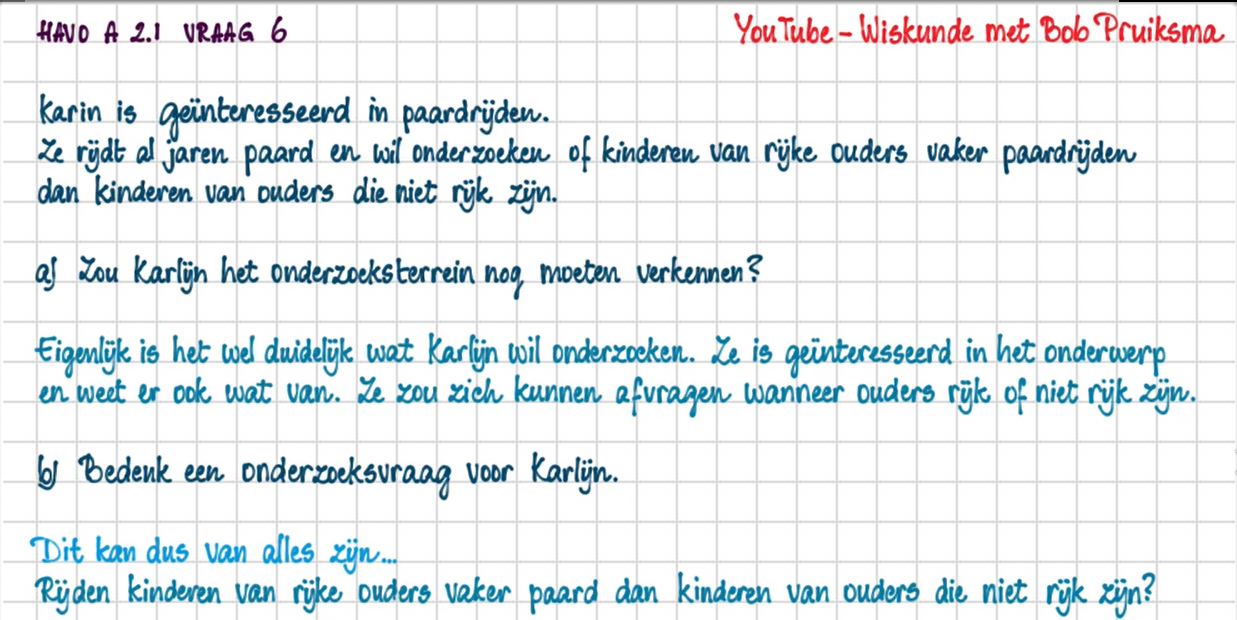 HAVO A 2.1 VRAAG 6
YouTube - Wiskunde met Bob Pruiksma
Karin is geïnteresseerd in paardrijden.
Ze rijdt al jaren paard en wil onderzoeken of kinderen van rijke ouders vaker paardrijden
dan kinderen van ouders die niet rijk zijn.
a) Zou Karlijn het onderzoeksterrein nog moeten verkennen?
Eigenlijk is het wel duidelijk wat Karlijn wil onderzoeken. Ze is geïnteresseerd in het onderwerp
en weet er ook wat van. Ze zou zich kunnen afvragen wanneer ouders rijk of niet rijk zijn.
b) Bedenk een onderzoeksvraag voor Karlijn.
Dit kan dus van alles zijn...
Rijden kinderen van rijke ouders vaker paard dan kinderen van ouders die niet rijk zijn?